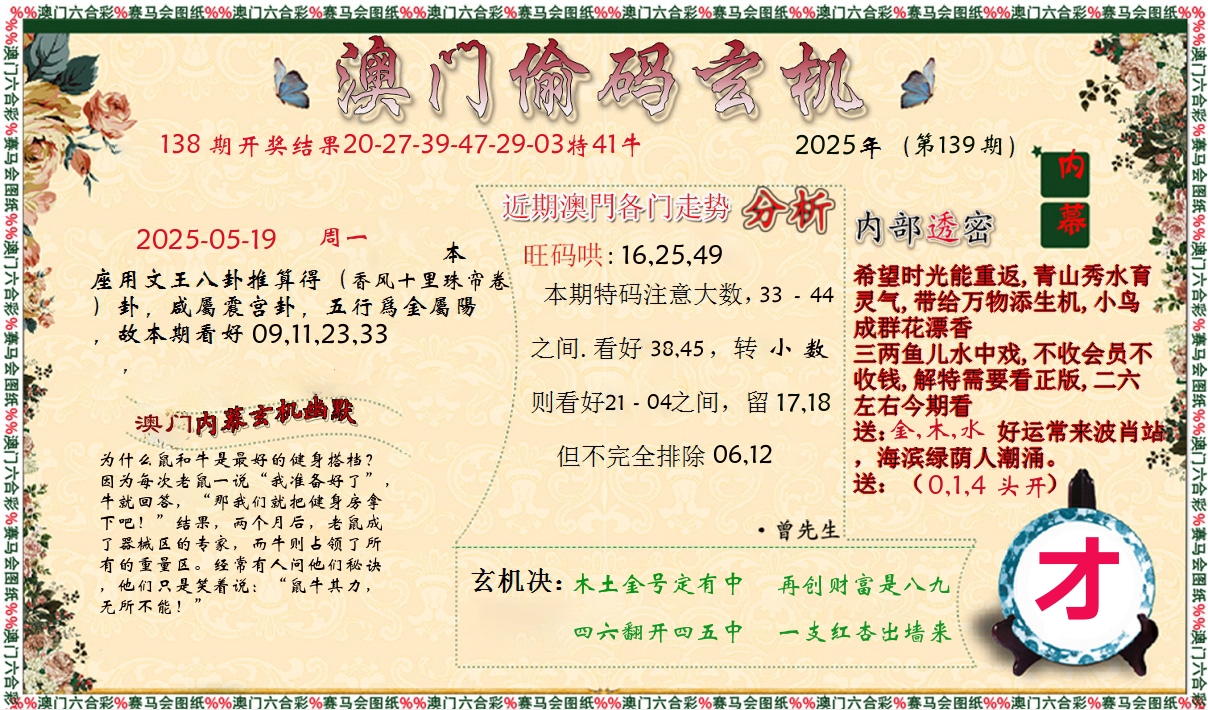 %%澳门六合彩%赛马会图纸%%澳门六合彩%赛马会图纸%%澳门六合彩%赛马会图纸%%澳门六合彩%赛马会图纸%%澳门六合彩%赛马会图纸%%澳门六合彩%赛马会图纸%%澳门六合彩%赛马会图纸%%
澳门偷码玄机
138 期开奖结果20-27-39-47-29-03特41牛
2025年（第139期）
内
幕
2025-05-19 周一
本
座用文王八卦推算得（香风十里珠帘卷
）卦，咸屬震宫卦，五行爲金屬陽
，故本期看好 09,11,23,33
，
澳门内幕玄机幽默
为什么鼠和牛是最好的健身搭档？
因为每次老鼠一说“我准备好了”，
牛就回答，“那我们就把健身房拿
下吧！”结果，两个月后，老鼠成
了器械区的专家，而牛则占领了所
有的重量区。经常有人问他们秘诀
，他们只是笑着说：“鼠牛其力，
无所不能！”
近期澳門各门走势 分析
旺码哄: 16,25,49
本期特码注意大数, 33 - 44
之间. 看好 38,45， 转 小 数
则看好21 - 04之间，留 17,18
但不完全排除 06,12
·曾先生
内部透密
希望时光能重返, 青山秀水育
灵气, 带给万物添生机, 小鸟
成群花漂香
三两鱼儿水中戏, 不收会员不
收钱, 解特需要看正版, 二六
左右今期看
送: 金, 木, 水 好运常来波肖站
，海滨绿荫人潮涌。
送: （0,1,4 头开）
玄机决: 木土金号定有中 再创财富是八九
四六翻开四五中 一支红杏出墙来
才
%%澳门六合彩%赛马会图纸%%澳门六合彩%赛马会图纸%%澳门六合彩%赛马会图纸%%澳门六合彩%赛马会图纸%%澳门六合彩%赛马会图纸%%澳门六合彩%赛马会图纸%%澳门六合彩%赛马会图纸%%